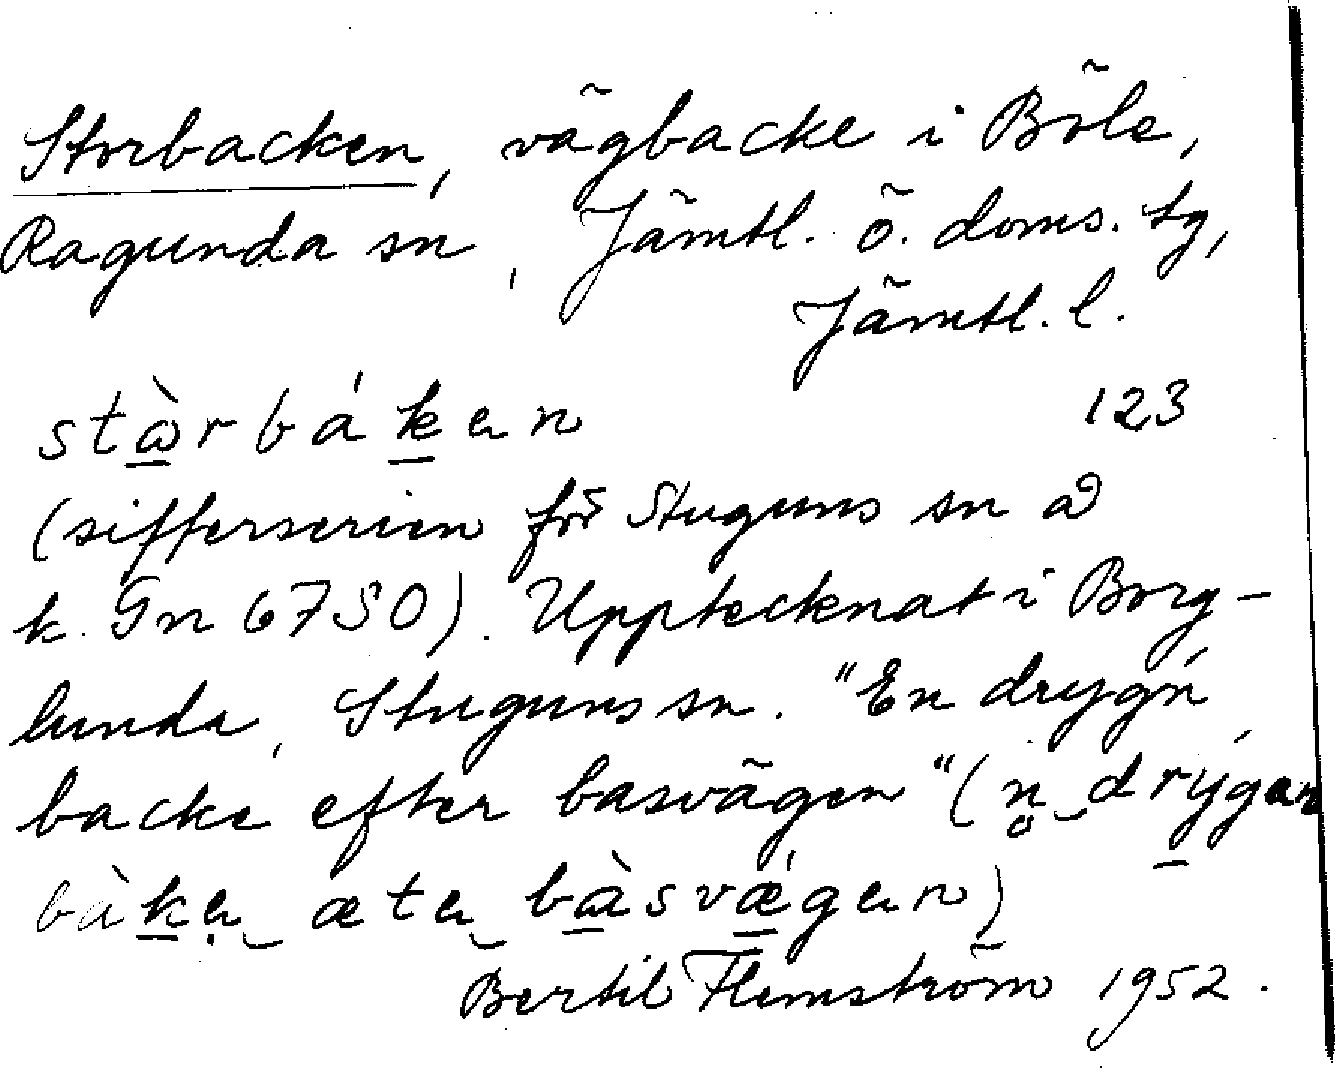 Storbacken, vägbacke i Böle,
Ragunda sn, Jämtl. ö. doms. tg,
Jämtl. l.
stàrbákan 123
(sifferserien för Stuguns sn å
k. Gn 6750). Upptecknat i Borg-
lunda, Stuguns sn. "En drygń
backe efter basvägen" (n̥ drýgan
bàka æta bàsvǽgan)
Bertil Flemström 1952.